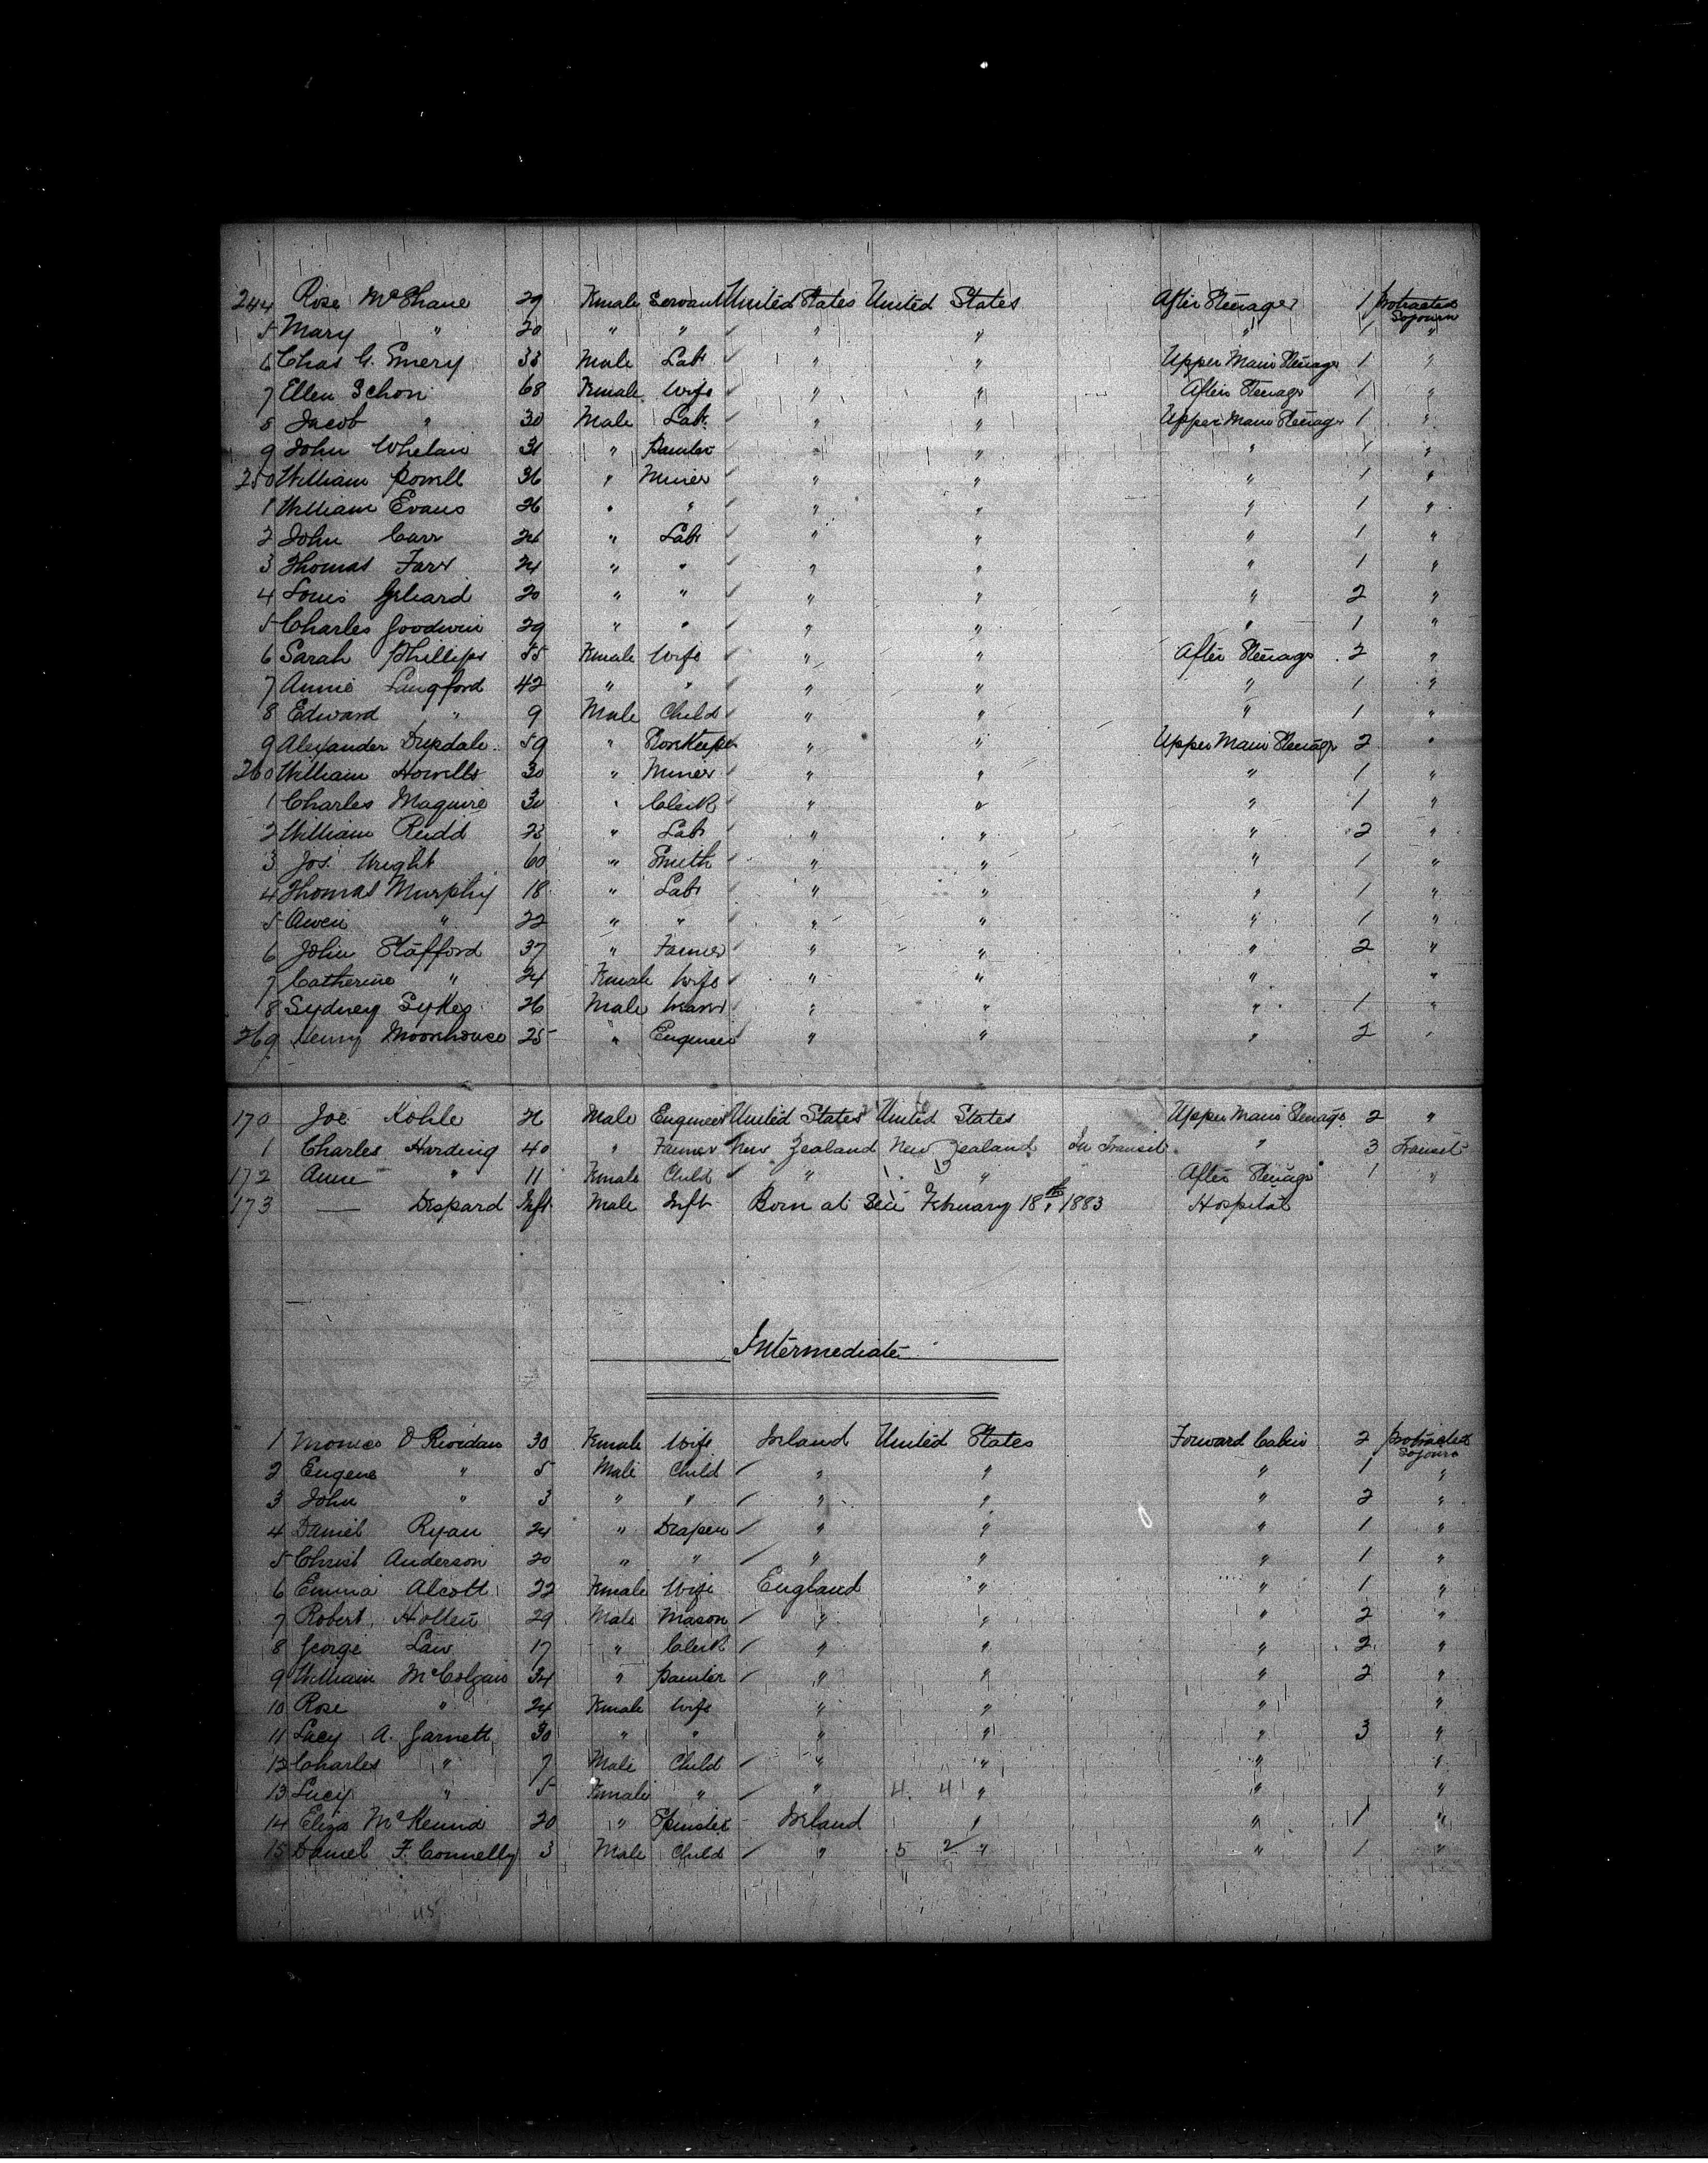 244 Rose McShane 29 Female Servant United States United States After Steerage 1 Protracted Sojourn
5 Mary " 20 " " " " " 1 "
6 Chas G. Emery 33 Male Labr " " Upper Main Steerage 1 "
7 Ellen Schon 68 Female Wife " " After Steerage 1 "
8 Jacob " 30 Male Labr " " Upper Main Steerage 1 "
9 John Whelan 31 " Painter " " " 1 "
250 William Powell 36 " Miner " " " 1 "
1 William Evans 26 " " " " " 1 "
2 John Carr 24 " Labr " " " 1 "
3 Thomas Farr 24 " " " " " 1 "
4 Louis 20 " " " " " 2 "
5 Charles Goodwin 29 " " " " " 1 "
6 Sarah Phillips 55 Female Wife " " After Steerage 2 "
7 Annie Langford 42 " " " " " 1 "
8 Edward " 9 Male Child " " " 1 "
9 Alexander Drysdale 59 " Storekeeper " " Upper Main Steerage 2 "
260 William Howells 30 " Miner " " " 1 "
1 Charles Maguire 30 " Clerk " " " 1 "
2 William Rudd 23 " Labr " " " 2 "
3 Jos. Wright 60 " Smith " " " 1 "
4 Thomas Murphy 18 " Labr " " " 1 "
5 Owen " 22 " " " " " 1 "
6 John Stafford 37 " Farmer " " " 2 "
7 Catherine " 24 Female Wife " " " "
8 Sydney Sykes 26 Male " " " 1 "
269 Henry Moorhouse 25 " Engineer " " " 2 "
170 Joe Kohle 26 Male Engineer United States United States Upper Main Steerage 2 "
1 Charles Harding 40 " Farmer New Zealand New Zealand In Transit " 3 Transit
172 Anne " 11 Female Child " " " After Steerage 1 "
173 — Despard Inft. Male Inft. Born at Sea February 18th, 1883 Hospital
Intermediate
1 Monica O'Riordan 30 Female Wife Ireland United States Forward Cabin 2 Protracted Sojourn
2 Eugene " 5 Male Child " " " 1 "
3 John " 3 " " " " " 2 "
4 Daniel Ryan 24 " Draper " " " 1 "
5 Christ Anderson 20 " " " " " 1 "
6 Emma Alcott 22 Female Wife England " " 1 "
7 Robert Holten 29 Male Mason " " " 2 "
8 George Law 17 " Clerk " " " 2 "
9 William McColgan 34 " Painter " " " 2 "
10 Rose " 24 Female Wife " " " "
11 Lucy A. Garnett 30 " " " " " 3 "
12 Charles " 7 Male Child " " " "
13 Lucy " 5 Female " " 4 4 " " "
14 Eliza McKenna 20 " Spinster Ireland " " 1 "
15 Daniel F. Connelly 3 Male Child " 5 2 " " 1 "